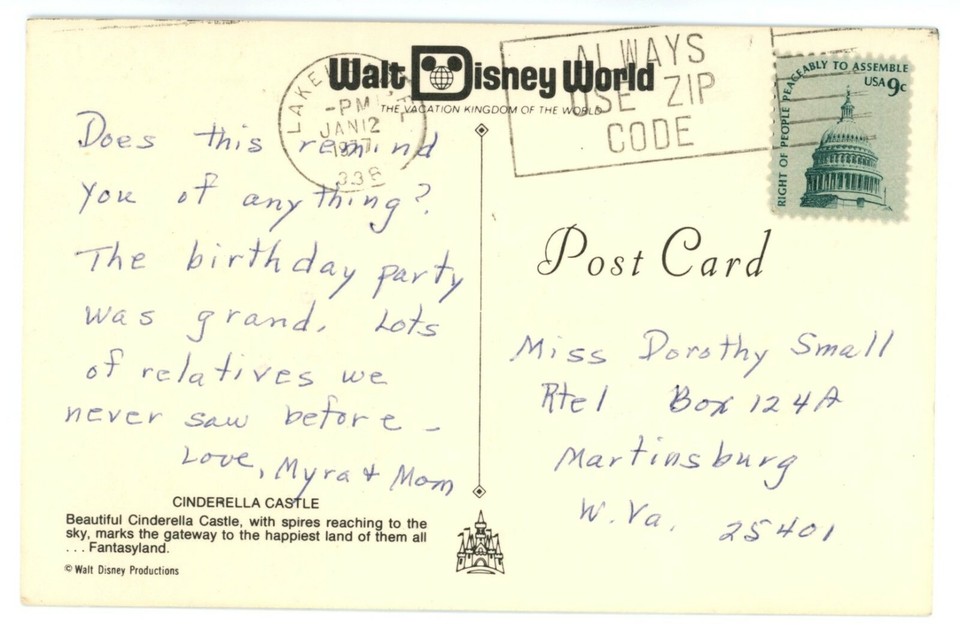 Walt Disney World
THE VACATION KINGDOM OF THE WORLD
-PM
JAN 12
1977
338
ALWAYS
USE ZIP
CODE
RIGHT OF PEOPLE PEACEABLY TO ASSEMBLE
USA 9c
Does this remind
you of anything?
The birthday party
was grand. Lots
of relatives we
never saw before –
Love, Myra & Mom
CINDERELLA CASTLE
Beautiful Cinderella Castle, with spires reaching to the
sky, marks the gateway to the happiest land of them all
. . . Fantasyland.
© Walt Disney Productions
Post Card
Miss Dorothy Small
Rte 1 Box 124A
Martinsburg
W. Va. 25401